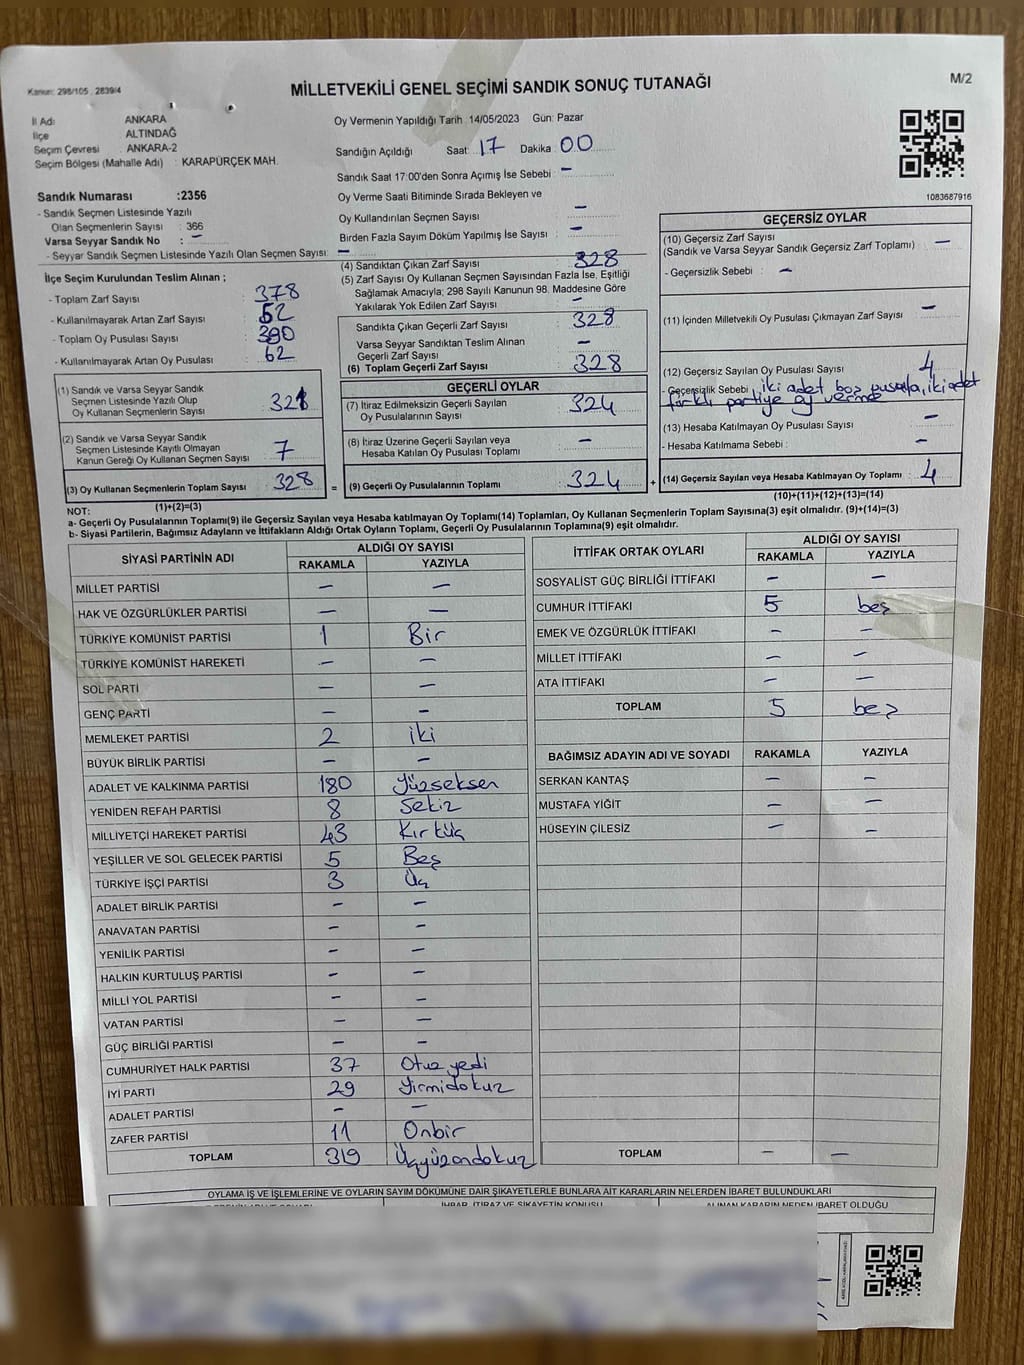 Kanun: 298/105 , 2839/4
MİLLETVEKİLİ GENEL SEÇİMİ SANDIK SONUÇ TUTANAĞI
M/2
İl Adı : ANKARA
İlçe : ALTINDAĞ
Seçim Çevresi : ANKARA-2
Seçim Bölgesi (Mahalle Adı) : KARAPÜRÇEK MAH.
Sandık Numarası :2356
- Sandık Seçmen Listesinde Yazılı
Olan Seçmenlerin Sayısı : 366
Varsa Seyyar Sandık No : –
- Seyyar Sandık Seçmen Listesinde Yazılı Olan Seçmen Sayısı: –
Oy Vermenin Yapıldığı Tarih :14/05/2023 Gün: Pazar
Sandığın Açıldığı Saat: 17 Dakika: 00
Sandık Saat 17:00'den Sonra Açımış İse Sebebi : –
Oy Verme Saati Bitiminde Sırada Bekleyen ve
Oy Kullandırılan Seçmen Sayısı –
Birden Fazla Sayım Döküm Yapılmış İse Sayısı –
1083687916
İlçe Seçim Kurulundan Teslim Alınan ;
- Toplam Zarf Sayısı : 378
- Kullanılmayarak Artan Zarf Sayısı : 52
- Toplam Oy Pusulası Sayısı : 390
- Kullanılmayarak Artan Oy Pusulası : 62
(1) Sandık ve Varsa Seyyar Sandık
Seçmen Listesinde Yazılı Olup
Oy Kullanan Seçmenlerin Sayısı 321
(2) Sandık ve Varsa Seyyar Sandık
Seçmen Listesinde Kayıtlı Olmayan
Kanun Gereği Oy Kullanan Seçmen Sayısı 7
(3) Oy Kullanan Seçmenlerin Toplam Sayısı 328
(1)+(2)=(3)
(4) Sandıktan Çıkan Zarf Sayısı 328
(5) Zarf Sayısı Oy Kullanan Seçmen Sayısından Fazla İse, Eşitliği
Sağlamak Amacıyla; 298 Sayılı Kanunun 98. Maddesine Göre
Yakılarak Yok Edilen Zarf Sayısı –
Sandıkta Çıkan Geçerli Zarf Sayısı 328
Varsa Seyyar Sandıktan Teslim Alınan
Geçerli Zarf Sayısı –
(6) Toplam Geçerli Zarf Sayısı 328
GEÇERLİ OYLAR
(7) İtiraz Edilmeksizin Geçerli Sayılan
Oy Pusulalarının Sayısı 324
(8) İtiraz Üzerine Geçerli Sayılan veya
Hesaba Katılan Oy Pusulası Toplamı –
= (9) Geçerli Oy Pusulalarının Toplamı 324 +
GEÇERSİZ OYLAR
(10) Geçersiz Zarf Sayısı
(Sandık ve Varsa Seyyar Sandık Geçersiz Zarf Toplamı) –
- Geçersizlik Sebebi : –
(11) İçinden Milletvekili Oy Pusulası Çıkmayan Zarf Sayısı –
(12) Geçersiz Sayılan Oy Pusulası Sayısı 4
- Geçersizlik Sebebi : iki adet boş pusula, iki adet
farklı partiye oy verme
(13) Hesaba Katılmayan Oy Pusulası Sayısı –
- Hesaba Katılmama Sebebi : –
(14) Geçersiz Sayılan veya Hesaba Katılmayan Oy Toplamı 4
(10)+(11)+(12)+(13)=(14)
NOT:
a- Geçerli Oy Pusulalarının Toplamı(9) ile Geçersiz Sayılan veya Hesaba katılmayan Oy Toplamı(14) Toplamları, Oy Kullanan Seçmenlerin Toplam Sayısına(3) eşit olmalıdır. (9)+(14)=(3)
b- Siyasi Partilerin, Bağımsız Adayların ve İttifakların Aldığı Ortak Oyların Toplamı, Geçerli Oy Pusulalarının Toplamına(9) eşit olmalıdır.
SİYASİ PARTİNİN ADI ALDIĞI OY SAYISI
RAKAMLA YAZIYLA
MİLLET PARTİSİ – –
HAK VE ÖZGÜRLÜKLER PARTİSİ – –
TÜRKİYE KOMÜNİST PARTİSİ 1 Bir
TÜRKİYE KOMÜNİST HAREKETİ – –
SOL PARTİ – –
GENÇ PARTİ – –
MEMLEKET PARTİSİ 2 iki
BÜYÜK BİRLİK PARTİSİ – –
ADALET VE KALKINMA PARTİSİ 180 Yüzseksen
YENİDEN REFAH PARTİSİ 8 Sekiz
MİLLİYETÇİ HAREKET PARTİSİ 43 Kırküç
YEŞİLLER VE SOL GELECEK PARTİSİ 5 Beş
TÜRKİYE İŞÇİ PARTİSİ 3 Üç
ADALET BİRLİK PARTİSİ – –
ANAVATAN PARTİSİ – –
YENİLİK PARTİSİ – –
HALKIN KURTULUŞ PARTİSİ – –
MİLLİ YOL PARTİSİ – –
VATAN PARTİSİ – –
GÜÇ BİRLİĞİ PARTİSİ – –
CUMHURİYET HALK PARTİSİ 37 Otuz yedi
İYİ PARTİ 29 Yirmidokuz
ADALET PARTİSİ – –
ZAFER PARTİSİ 11 Onbir
TOPLAM 319 Üçyüzondokuz
İTTİFAK ORTAK OYLARI ALDIĞI OY SAYISI
RAKAMLA YAZIYLA
SOSYALİST GÜÇ BİRLİĞİ İTTİFAKI – –
CUMHUR İTTİFAKI 5 beş
EMEK VE ÖZGÜRLÜK İTTİFAKI – –
MİLLET İTTİFAKI – –
ATA İTTİFAKI – –
TOPLAM 5 beş
BAĞIMSIZ ADAYIN ADI VE SOYADI RAKAMLA YAZIYLA
SERKAN KANTAŞ – –
MUSTAFA YİĞİT – –
HÜSEYİN ÇİLESİZ – –
TOPLAM – –
OYLAMA İŞ VE İŞLEMLERİNE VE OYLARIN SAYIM DÖKÜMÜNE DAİR ŞİKAYETLERLE BUNLARA AİT KARARLARIN NELERDEN İBARET BULUNDUKLARI
İHBAR, İTİRAZ VE ŞİKAYETİN KONUSU ALINAN KARARIN NEDEN İBARET OLDUĞU